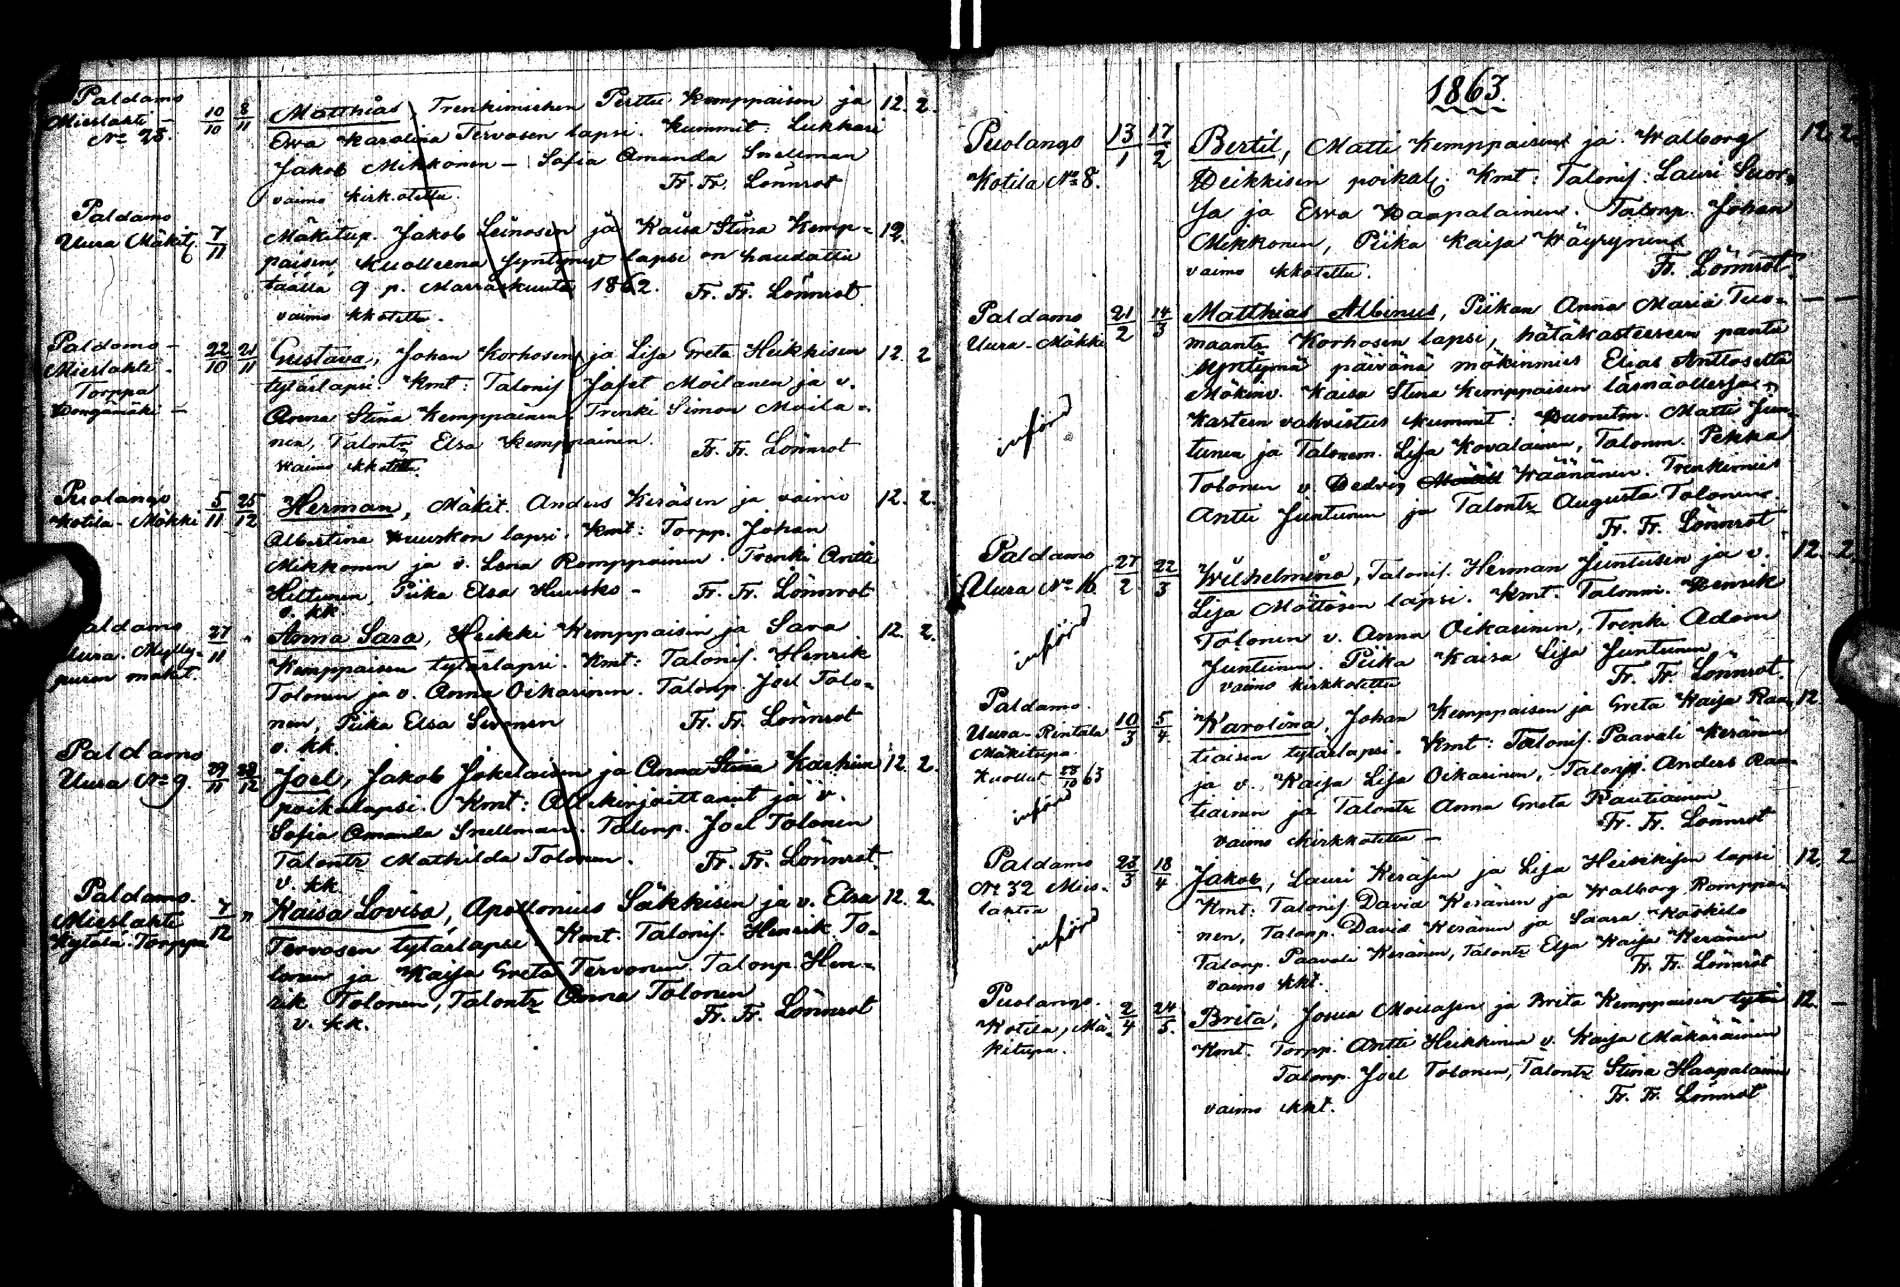 Paldamo
Mieslahti
No 25.
10/10 8/11
Matthias, Trenkimiehen Perttu Kemppaisen ja 12. 2.
Eeva Karolina Tervosen lapsi. Kummit: Lukkari
Jakob Mikkonen – Sofia Amanda Snellman
Fr. Fr. Lönnrot
vaimo kirkotettu.
Paldamo
Uura Mäkit.
7/11
Mäkitup. Jakob Leinosen ja Kaisa Stina Kemp= 12.
paisen kuolleena syntynyt lapsi on haudattu
täällä 9 p. Marraskuuta 1862. Fr. Fr. Lönnrot
vaimo kkotettu.
Paldamo –
Mieslahti –
Torppa
22/10 21/11
Gustava, Johan Korhosen ja Lisa Greta Heikkisen 12. 2
tytärlapsi. Kmt: Talonis. Jafet Moilanen ja v.
Anna Stina Kemppainen. Trenki Simon Moila=
nen, Talontr Elsa Kemppainen. Fr. Fr. Lönnrot
vaimo kkotettu.
Puolango
Kotila-Mökki
5/11 25/12
Herman, Mäkit. Anders Keräsen ja vaimo 12. 2.
Albertina Huuskon lapsi. Kmt: Torpp. Johan
Mikkonen ja v. Lena Romppainen. Trenki Antti
Hiltunen, Piika Elsa Huusko – Fr. Fr. Lönnrot
v. kk.
Paldamo
Uura. Mylly=
puron mäkit.
27/11 "
Anna Sara, Heikki Kemppaisen ja Sara 12. 2.
Kemppaisen tytärlapsi. Kmt: Talonis. Henrik
Tolonen ja v. Anna Oikarinen. Talonp. Joel Tolo=
nen Piika Elsa Sirenen Fr. Fr. Lönnrot
v. kk.
Paldamo
Uura No 9.
29/11 28/12
Joel, Jakob Jokelaisen ja Anna Stina Karhun 12. 2.
poikalapsi. Kmt: Allekirjoittanut ja v.
Sofia Amanda Snellman. Talonp. Joel Tolonen
Talontr Mathilda Tolonen. Fr. Fr. Lönnrot
v. kk.
Paldamo.
Mieslahti
Kylälä-Torppa
7/12 "
Kaisa Lovisa, Apollonius Säkkisen ja v. Elsa 12. 2.
Tervosen tytärlapsi Kmt. Talonis. Henrik To=
lonen ja Kaisa Greta Tervonen. Talonp. Hen=
rik Tolonen, Talontr Anna Tolonen
Fr. Fr. Lönnrot
v. kk.
1863.
Puolango
Kotila No 8.
13/1 17/2
Bertil, Matti Kemppaisen ja Walborg 12. 2
Heikkisen poikal. Kmt: Talonis. Lauri Suor=
sa ja Eeva Haapalainen. Talonp. Johan
Mikkonen, Piika Kaisa Wäyrynen
vaimo kkotettu. Fr. Lönnrot.
Paldamo
Uura-Mökki
21/2 14/3
införd
Matthias Albinus, Piikan Anna Maria Tuo= – –
maantr Korhosen lapsi, hätäkasteeseen pantu
syntymä päivänä mökinmies Elias Anttoselta
Mökinv. Kaisa Stina Kemppaisen läsnäollessa –
Kasteen vahvistus kummit: Huonem. Matti Jun=
tunen ja Talonem. Lisa Kovalainen, Talonm. Pekka
Tolonen v. Hedvig Wäänänen. Trenkimies
Antti Juntunen ja Talontr Augusta Tolonen.
Fr. Fr. Lönnrot
Paldamo
Uura No 16
27/2 22/3
införd
Wilhelmina, Talonis. Herman Juntusen ja v. 12. 2.
Lisa Möttösen lapsi. Kmt. Talonm. Henrik
Tolonen v. Anna Oikarinen, Trenki Adam
Juntunen. Piika Kaisa Lisa Juntunen
vaimo kirkkotettu Fr. Fr. Lönnrot.
Paldamo.
Uura-Rintala
Mäkitupa.
Kuollut 28/10 63
10/3 5/4
införd
Karolina, Johan Kemppaisen ja Greta Kaisa Rau= 12.
tiaisen tytärlapsi. Kmt: Talonis. Paavali Keränen
ja v. Kaisa Lisa Oikarinen, Talonp. Anders Rau=
tiainen ja Talontr Anna Greta Rautiainen
Fr. Fr. Lönnrot
vaimo kirkkotettu –
Paldamo
No 32 Mies=
lahti
23/3 18/4
införd
Jakob, Lauri Keräsen ja Lisa Heikkisen lapsi 12. 2
Kmt: Talonis. David Keränen ja Walborg Romppai=
nen, Talonp. David Keränen ja Saara
Talonp. Paavali Keränen, Talontr Elsa Kaisa Keränen
Fr. Fr. Lönnrot
vaimo kkt.
Puolango.
Kotila, Mä=
kitupa.
2/4 24/5.
Brita, Josua Moilasen ja Brita Kemppaisen tytär 12. –
Kmt. Torpp. Antti Heikkinen v. Kaisa Mäkäräinen
Talonp. Joel Tolonen, Talontr Stina Haapalainen
Fr. Fr. Lönnrot
vaimo kkt.